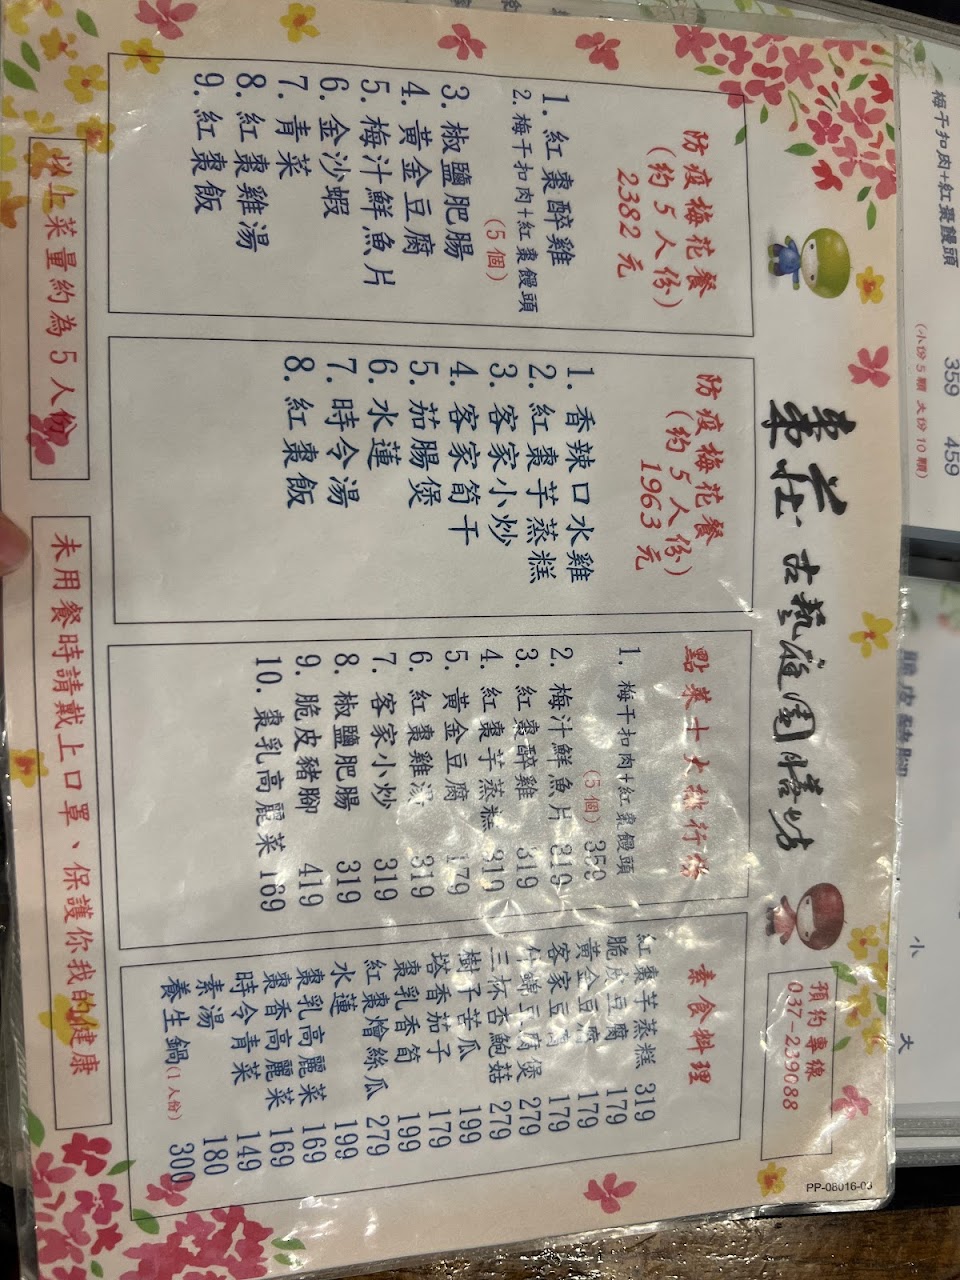 棗莊 古藝庭園膳坊
預約專線
037-239088
防疫梅花餐
(約5人份)
2382 元
1. 紅棗醉雞
2. 梅干扣肉+紅棗饅頭
(5個)
3. 椒鹽肥腸
4. 黃金豆腐
5. 梅汁鮮魚片
6. 金沙蝦
7. 青菜
8. 紅棗雞湯
9. 紅棗飯
防疫梅花餐
(約5人份)
1963 元
1. 香辣口水雞
2. 紅棗芋蒸糕
3. 客家小炒
4. 客家筍干
5. 茄腸煲
6. 水蓮
7. 時令湯
8. 紅棗飯
點菜十大排行榜
1. 梅干扣肉+紅棗饅頭
(5個) 359
2. 梅汁鮮魚片 319
3. 紅棗醉雞 319
4. 紅棗芋蒸糕 319
5. 黃金豆腐 179
6. 紅棗雞湯 319
7. 客家小炒 319
8. 椒鹽肥腸 319
9. 脆皮豬腳 419
10. 棗乳高麗菜 169
素食料理
紅棗芋蒸糕 319
脆皮豆腐 179
黃金豆腐 179
客家豆腐 179
什錦豆腐煲 279
三杯杏鮑菇 279
樹子苦瓜 199
塔香茄子 179
棗乳香筍 199
紅棗燴絲瓜 279
水蓮 199
棗乳高麗菜 169
棗香高麗菜 169
時令青菜 149
素湯 180
養生鍋(1人份) 300
以上菜量約為5人份
未用餐時請戴上口罩、保護你我的健康
PP-08016-03
梅干扣肉+紅棗饅頭
359 459
(小份5顆 大份10顆)
小 大